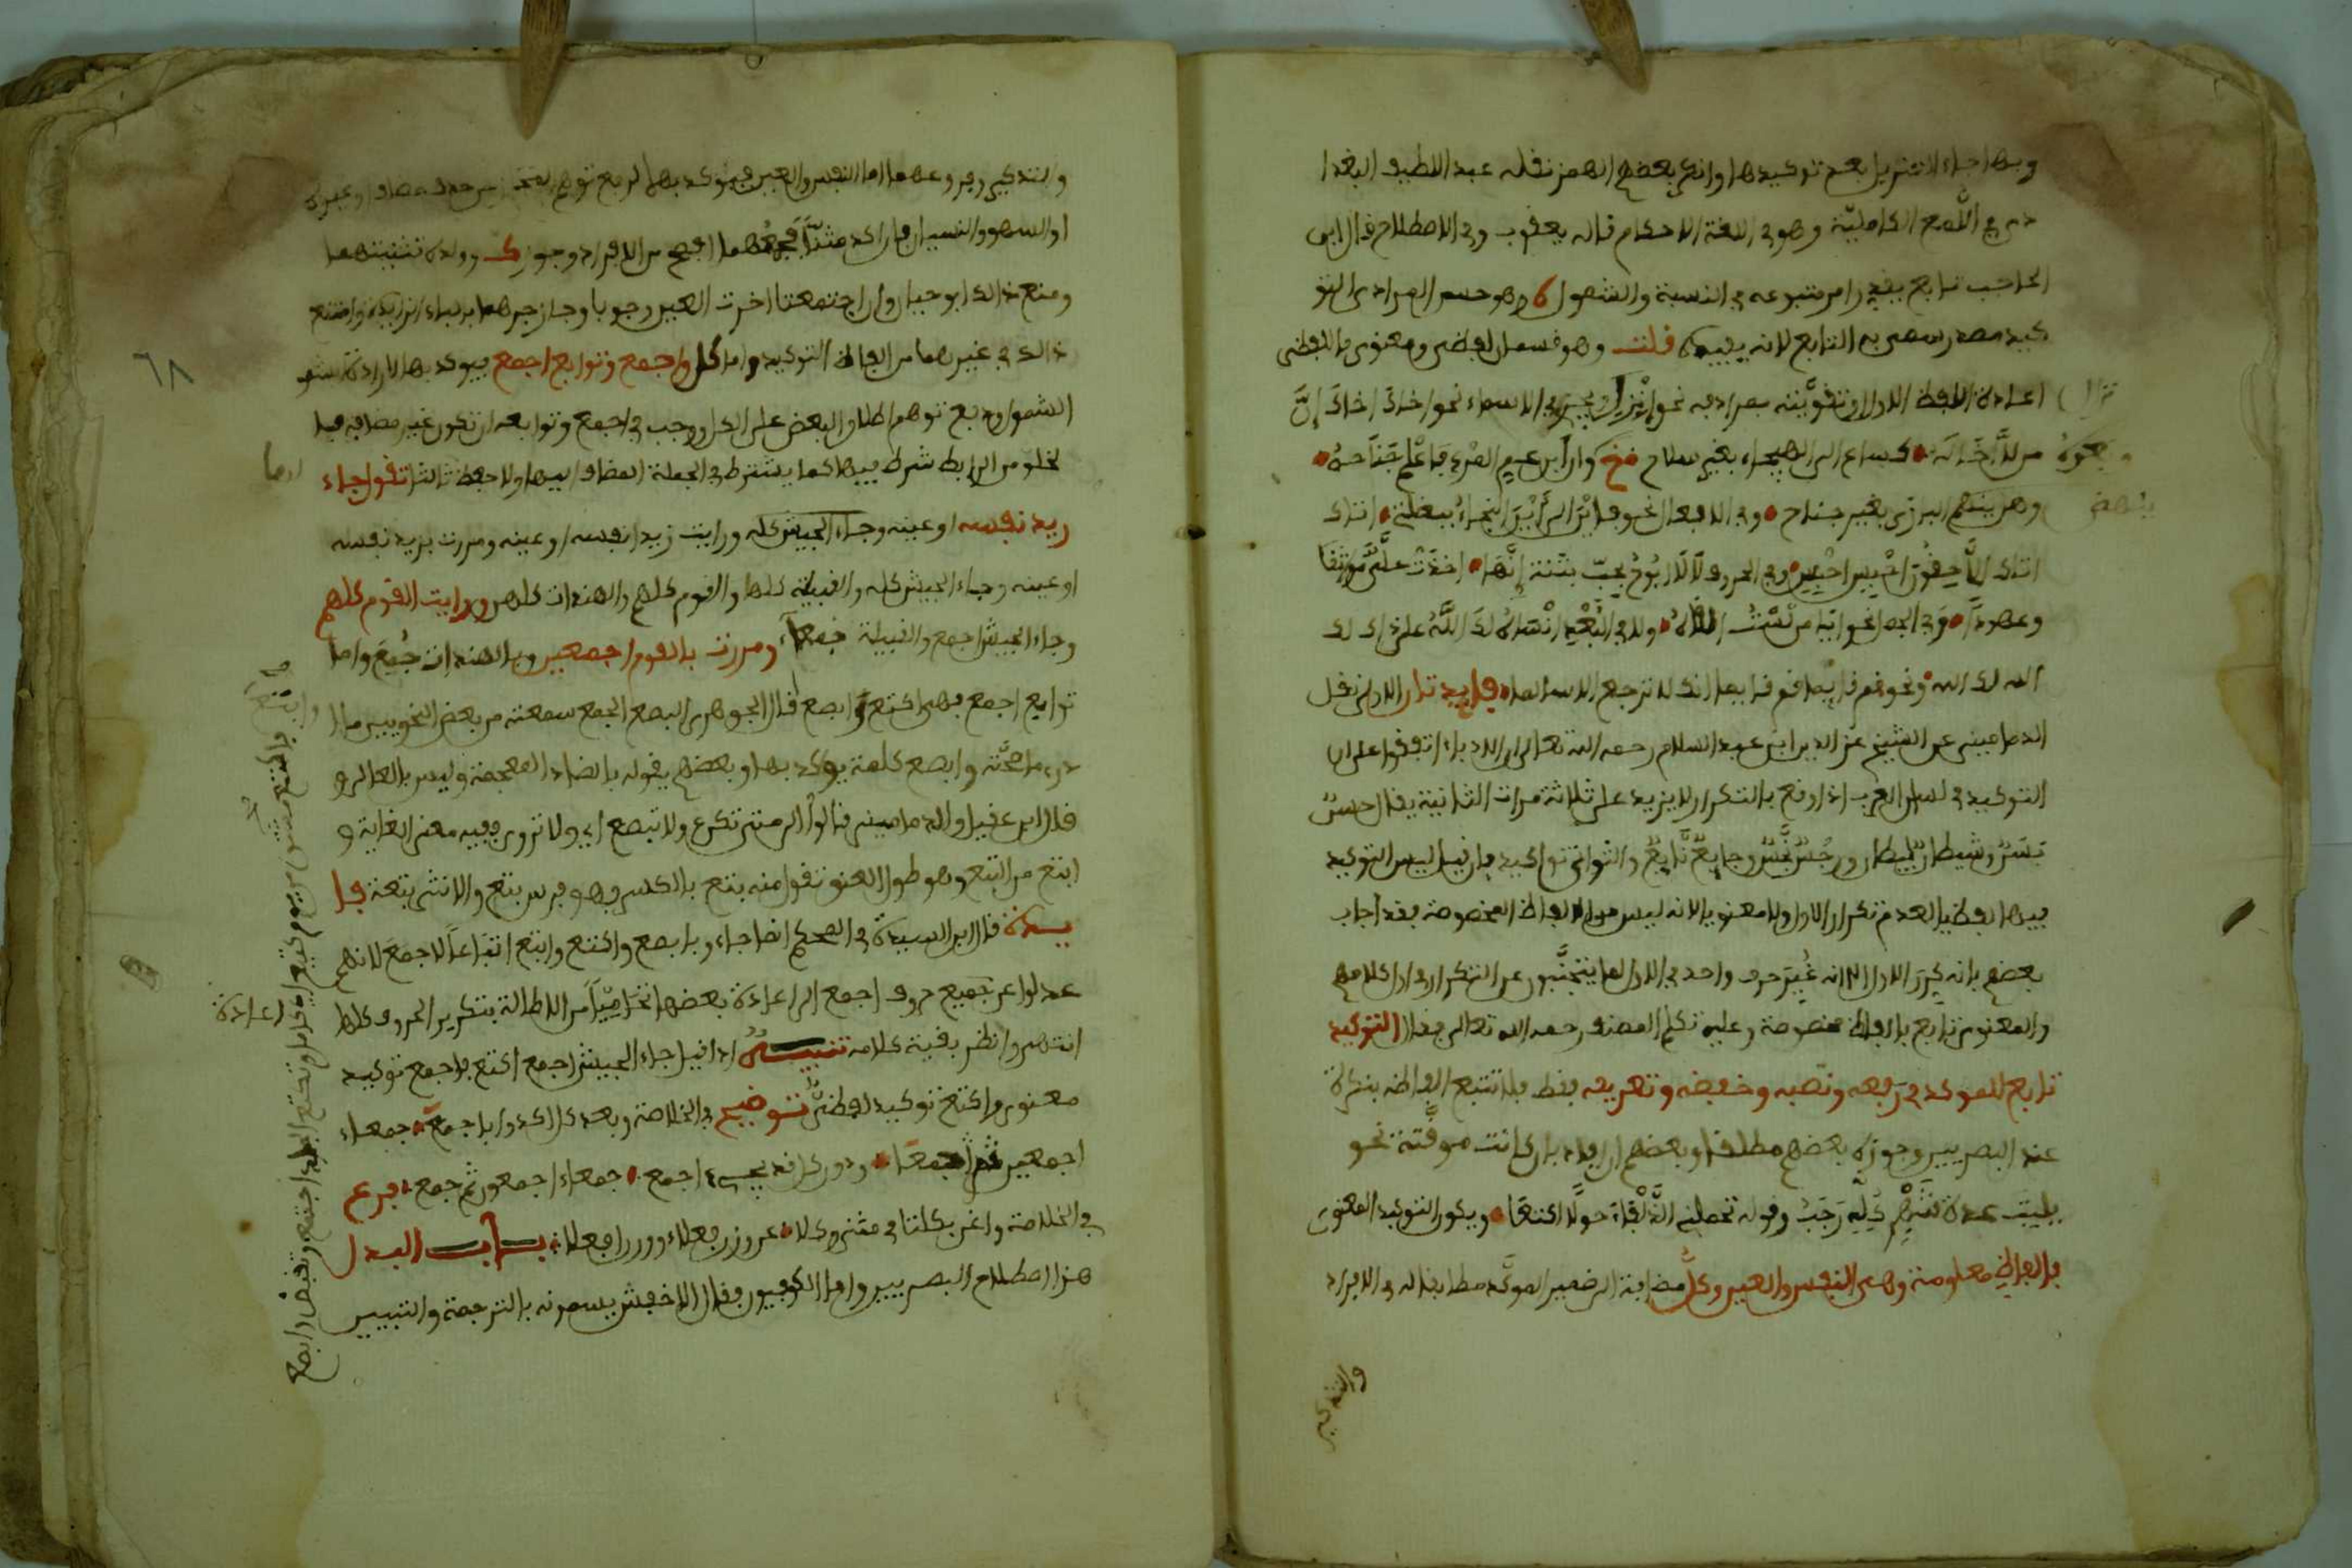 وبها جاء التنزيل بعد توكيدها وانكر بعضهم الهمز نقله عبد اللطيف البغدا
دي في اللمع الكاملية وهو في اللغة الاحكام قاله يعقوب وفي الاصطلاح قال ابن
الحاجب تابع يقرر امر متبوعه في النسبة والشمول وهو حسن المرادي التو
كيد مصدر سمي به التابع لانه يفيده قلت وهو قسمان لفظي ومعنوي فاللفظي
اعادة اللفظ الاول او تقويته بمرادفه نحو انزل ويجري في الاسماء نحو اخاك اخاك إنّ
من لا أخا له كساع الى الهيجاء بغير سلاح وان ابن عم المرء فاعلم جناحه
وهل ينهض البازي بغير جناح وفي الافعال نحو فاين الى اين النجاء ببغلتي اتاك
اتاك اللاحقون احبس احبس وفي الحروف لا لا ابوح بحب بثنة إنها اخذت علي مواثقا
وعهودا وفي الجمل نحو
الله لك الله ونحو قم قائما قم قائما انك لا ترجع الا سالما فايدتان الاولى نقل
الدماميني عن الشيخ عز الدين ابن عبد السلام رحمه الله تعالى ان الادباء اتفقوا على ان
التوكيد في لسان العرب اذا وقع بالتكرار لا يزيد على ثلاثة مرات الثانية يقال حسن
بسن وشيطان ليطان ورجس نجس وجايع نايع والثواني تواكيد فان قيل ليس التوكيد
فيها لفظيا لعدم تكرار الاول ولا معنويا لانه ليس من الالفاظ المخصوصة فقد اجاب
بعضهم بانه كرر الاول الا انه غير حرف واحد في الاول لما يتجنبون عن التكرار في كلامهم
والمعنوي تابع بالفاظ مخصوصة وعليه تكلم المصنف رحمه الله تعالى فقال التوكيد
تابع للموكد في رفعه ونصبه وخفضه وتعريفه فقط فلا تتبع الفاظه نكرة
عند البصريين وجوزه بعضهم مطلقا وبعضهم ان افاد بان كانت موقتة نحو
يا ليت عدة شهر كله رجب وقوله تحملني الذلفاء حولا اكتعا ويكون التوكيد المعنوي
بالفاظ معلومة وهي النفس والعين وكل مضافة الى ضمير الموكد مطابقا له في الافراد
والتذكير
ينهض
والتذكير وفروعهما اما النفس والعين فيؤكد بهما لرفع توهم
او السهو والنسيان فان اكد مثنى فجمعهما افصح من الافراد وجوز ك وولده تثنيتهما
ومنع ذالك ابو حيان وان اجتمعتا اخرت العين وجوبا وجاز جرهما بباء زايدة وامتنع
ذالك في غيرهما من الفاظ التوكيد واما كل واجمع وتوابع اجمع فيوكد بها لارادة
الشمول ورفع توهم اطلاق البعض على الكل ووجب في اجمع وتوابعه ان تكون غير مضافة
لخلو من الرابط شرط فيها كما يشترط في الجملة المضاف اليها ولا حفظ ثالثا تقول جاء
زيد نفسه او عينه وجاء الجيش كله ورايت زيدا نفسه او عينه ومررت بزيد نفسه
او عينه وجاء الجيش كله والقبيلة كلها والقوم كلهم والهندات كلهن ورايت القوم كلهم
وجاء الجيش اجمع والقبيلة جمعاء ومررت بالقوم اجمعين وبالهندات جمع واما
توابع اجمع فهي اكتع وابصع قال الجوهري البصع الجمع سمعته من بعض النحويين ما
ادري ما صحته وابصع كلمة يوكد بها وبعضهم يقوله بالضاد المعجمة وليس بالعالي و
قال ابن عقيل والدماميني قالوا الى متى تكرع ولا تبصع اي ولا تروى ففيه معنى الغاية و
ابتع من البتع وهو طول العنق تقول منه بتع بالكسر فهو فرس بتع والانثى بتعة فا
يدة قال ابن السيدة في المحكم انما جاءوا بابصع واكتع وابتع اتباعا لاجمع لانهم
عدلوا عن جميع حروف اجمع الى اعادة بعضها تحاميا من الاطالة بتكرير الحروف كلها
انتهى وانظر بقية كلامه تنبيه اذا قيل جاء الجيش اجمع اكتع فاجمع توكيد
معنوي واكتع توكيد لفظي توضيح في الخلاصة وبعد كل اكدوا باجمع جمعاء
اجمعين ثم جمعا ودون كل قد يجيء اجمع جمعاء اجمعون ثم جمع فرع
في الخلاصة واغن بكلتا في مثنى وكلا عن وزن فعلاء ووزن افعلا باب البدل
هذا اصطلاح البصريين واما الكوفيون فقال الاخفش يسمونه بالترجمة والتبيين
٦٨
اعادة